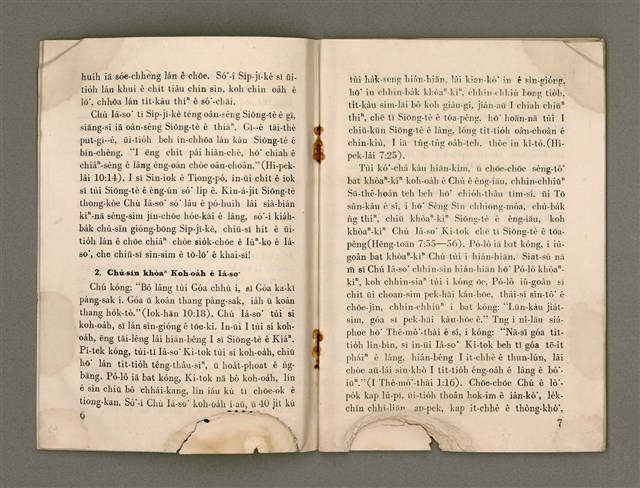 huih iā sóe-chhēng lán ê chōe. Só͘-í Si̍p-jī-kè sī ūi-
tio̍h lán khui ê chit tiâu chin sin, koh chin oa̍h ê
lō͘, chhōa lán ti̍t-kàu thiⁿ ê só͘-chāi.
Chú Iâ-so͘ tī Si̍p-jī-kè téng oân-sêng Siōng-tè ê gī,
siāng-sî iā oân-sêng Siōng-tè ê thiàⁿ. Gī--ê tāi-thè
put-gī--ê, ūi-tio̍h beh ín-chhōa lán kàu Siōng-tè ê
bīn-chêng. "I êng chi̍t pái hiàn-chè, hō͘ chiah ê
chiâⁿ-sèng ê lâng éng-oán chòe oân-choân." (Hi-pek-
lâi 10:14). I sī Sin-iok ê Tiong-pó, in-ūi chit ê iok
sī tùi Siōng-tè ê èng-ún só͘ li̍p ê. Kin-á-ji̍t Siōng-tè
thong-kòe Chú Iâ-so͘ só͘ lâu ê pó-huih lâi sià-bián
kiⁿ-nā sêng-sim jīn-chōe hóe-kái ê lâng, só͘-í kia̍h-
ba̍k chù-sìn gióng-bōng Si̍p-jī-kè, chiū-sī hit ê ūi-
tio̍h lán ê chōe chiâⁿ chòe sio̍k-chōe ê Iûⁿ-ko ê Iâ-
so͘, che chiū-sī sìn-sim ê tō-lō͘ ê khai-sí!
2. Chù-sìn khòaⁿ Koh-oa̍h ê Iâ-so͘
Chú kóng: "Bô lâng tùi Góa chhú i, sī Góa ka-kī
pàng-sak i. Góa ū koân thang pàng-sak, ia̍h ū koân
thang ho̍k-tò." (Iok-hān 10:18). Chú Iâ-so͘ tùi sí
koh-oa̍h, sī lán sìn-gióng ê tōe-ki. In-ūi I tùi sí koh-
oa̍h, ēng tāi-lêng lâi hián-bêng I sī Siōng-tè ê Kiáⁿ.
Pí-tek kóng, tùi-tī Iâ-so͘ Ki-tok tùi sí koh-oa̍h, chiū
hō͘ lán tit-tio̍h têng-thâu-siⁿ, ū hoa̍t-phoat ê ǹg-
bāng. Pó-lô iā bat kóng, Ki-tok nā bô koh-oa̍h, lín
ê sìn chiū bô chhái-kang, lín iáu kú tī chōe-ok ê
tiong-kan. Só͘-í Chú Iâ-so͘ koh-oa̍h í-āu, ū 40 ji̍t kú
6
tùi ha̍k-seng hián-hiān, lâi kian-kò͘ in ê sìn-gióng,
hō͘ in chhin-ba̍k khòaⁿ-kìⁿ, chhin-chhiú bong tio̍h,
ti̍t-kàu sim-lāi bô koh giâu-gî, jiân-āu I chiah chiūⁿ
thiⁿ, chē tī Siōng-tè ê tōa-pêng, hō͘ hoān-nā tùi I
chiū-kūn Siōng-tè ê lâng, lóng tit-tio̍h oân-choân ê
chín-kiù, I iā tn̂g-tn̂g oa̍h-teh, thòe in kî-tó. (Hi-
pek-lâi 7:25).
Tùi kó͘-chá kàu hiān-kim, ū chōe-chōe sèng-tô͘
bat khòaⁿ-kìⁿ koh-oa̍h ê Chú ê êng-iāu, chhin-chhiūⁿ
Sū-thê-hoán teh beh hō͘ chio̍h-thâu tìm-sí, ūi Tō
sūn-kàu ê sî, i hō͘ Sèng Sîn chhiong-móa, chù-ba̍k
ǹg thiⁿ, chiū khòaⁿ-kìⁿ Siōng-tè ê êng-iāu, koh
khòaⁿ-kìⁿ Chú Iâ-so͘ Ki-tok chē tī Siōng-tè ê tōa-
pêng (Hēng-toān 7:55—56). Pó-lô iā bat kóng, i iú-
goân bat khòaⁿ-kìⁿ Chú tùi i hián-hiān. Sia̍t-sú nā
m̄ sī Chú Iâ-so͘ chhin-sin hián-hiān hō͘ Pó-lô khòaⁿ-
kìⁿ, koh chhin-siaⁿ tùi i kóng ōe, Pó-lô iú-goân sī
chi̍t ūi choan-sim pek-hāi kàu-hōe, thâi-sí sìn-tô͘ ê
chōe-jîn, chhin-chhiūⁿ i bat kóng: "Lūn-kàu jia̍t-
sim, góa sī pek-hāi kàu-hōe ê." Tng i nî-lāu siá-
phoe hō͘ Thê-mô͘-thài ê sî, i kóng: "Nā-sī góa tit-
tio̍h lîn-bín, sī in-ūi Iâ-so͘ Ki-tok beh tī góa tē-it
pháiⁿ ê lâng, hián-bêng I it-chhè ê thun-lún, lâi
chòe āu-lâi sìn-khò I tit-tio̍h éng-oa̍h ê lâng ê bô͘-
iūⁿ." (I Thê-mô͘-thài 1:16). Chōe-chōe Chú ê lô͘-
po̍k kap lú-pī, ūi-tio̍h thoân hok-im ê iân-kò͘, le̍k-
chīn chhi-liân ap-pek, kap it-chhè ê thòng-khó͘,
7